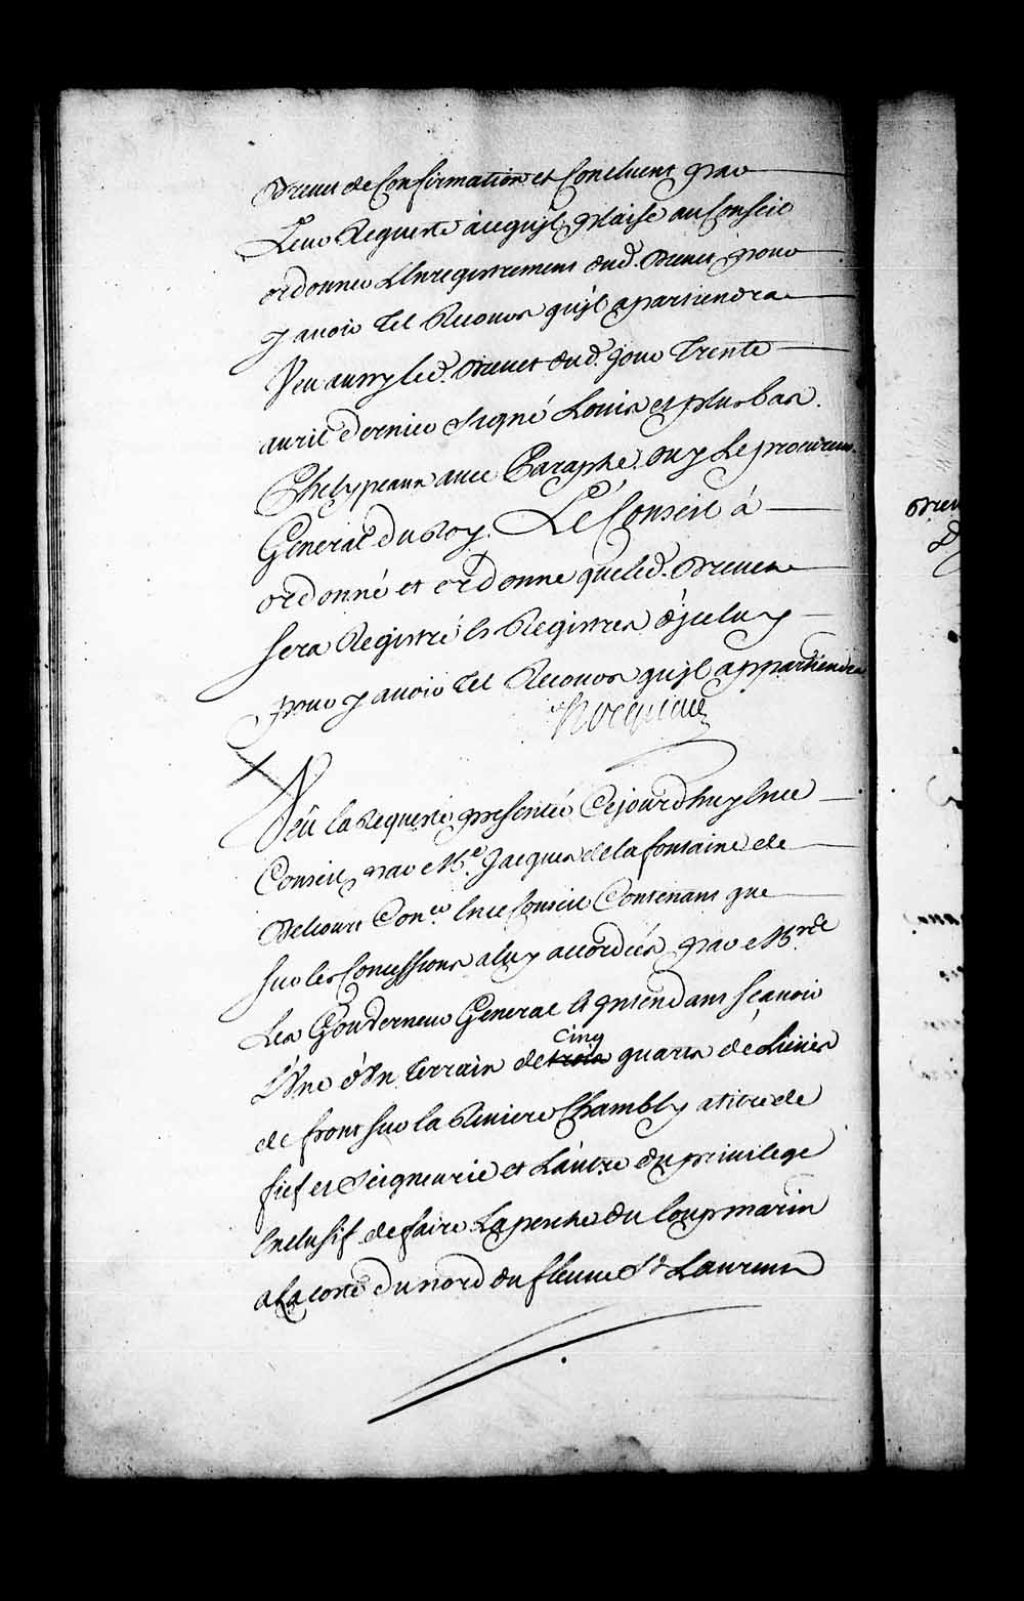 Brevet de Confirmation et Concluent par
Leur Requeste àcequjl plaise auConseil
ordonner LEnregistrement dud. Brevet pour
y avoir tel Recours qujl apartiendra
Veu aussy led. Brevet dud. jour trente
avril dernier Signé Louis et plus bas
Phelypeaux avec Paraphe. Ouy Le procureur
General du Roy. Le Conseil à
ordonné et ordonne que led. Brevet
sera Registré és Registres d'jceluy
pour y avoir tel Recours qujl appartiendra
Hocquart
Veû la Requeste presentée Cejourdhuy Ence
Conseil par Me. Jacques de lafontaine de
Belcourt Coner. Ence Conseil Contenant que
sur les Concessions aluy accordées par Mrs. Le
Les Gouverneur General et jntendant sçavoir
L'Une d'Un terrain de trois quarts de Lieües
Cinq
de front sur la Riviere Chambly atitre de
fief et Seigneurie et L'autre du privilege
Exclusif de faire La pesche du loup marin
a La coste du nord du fleuve St. Laurent
Brev